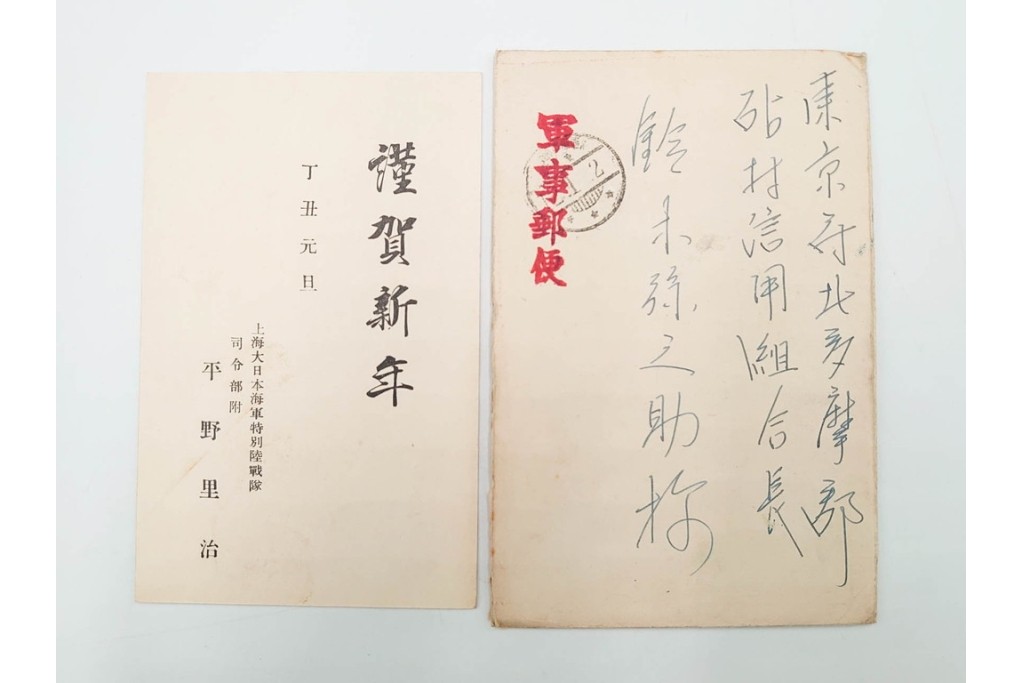 謹賀新年
丁丑元旦
上海大日本海軍特別陸戰隊
司令部附
平野里治
東京府北多摩郡
砧村信用組合長
鈴木孫之助様
軍事郵便
2